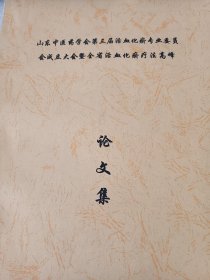 山东中医药学会第三届活血化瘀专业委员
会成立大会暨全省活血化瘀疗法高峰
论
文
集